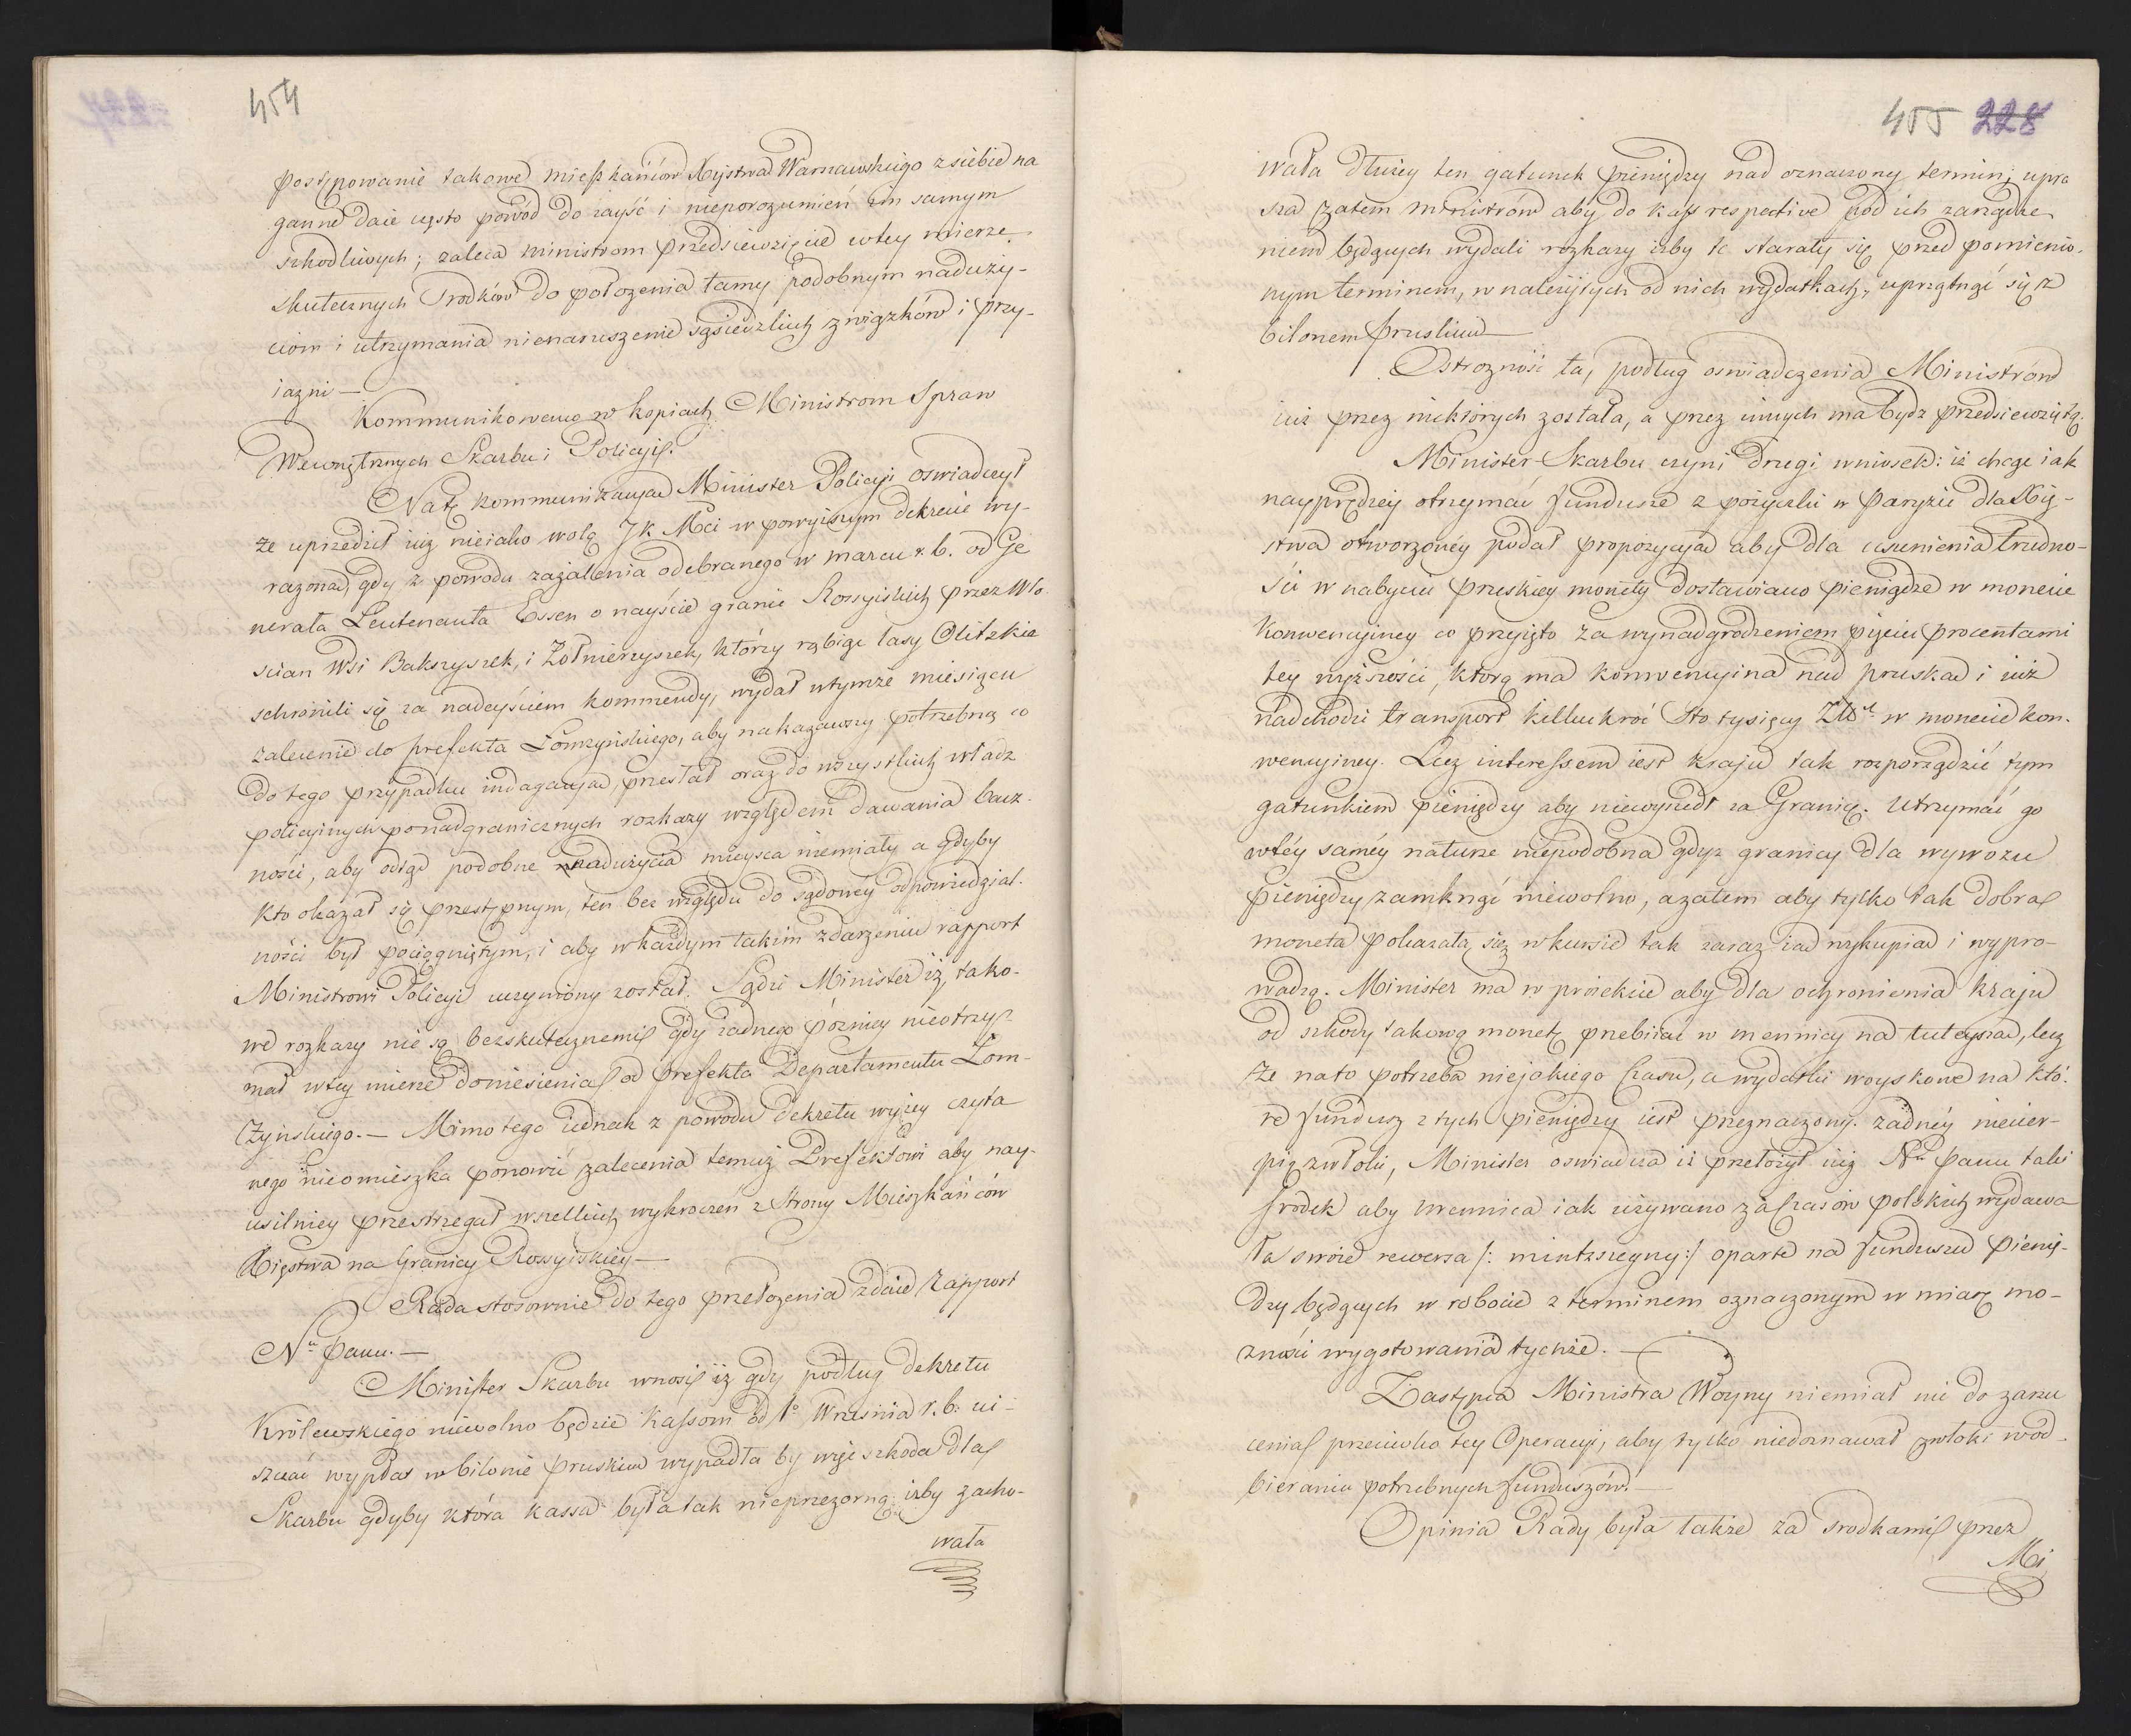 454
postępowanie takowe mieszkańców Xięstwa Warszawskiego z siebie na
ganne daie często powód do zayść i nieporozumień im samym
szkodliwych; zaleca ministrom przedsiewzięcie wtey mierze
skutecznych srodków do położenia tamy podobnym naduży-
ciom i utrzymania nienaruszenie sąsiedzkich związków i przy-
iazni —
Kommunikowano w kopiach Ministrom Spraw
Wewnętrznych Skarbu i Policyi.
Na tę kommunikacyą Minister Policyi oswiadczył
że uprzedził iuż nieiako wolą J K Mci w powyższym dekrecie wy-
rażoną, gdy z powodu zażallenia odebranego w marcu r. b. od Ge
nerała Leutenanta Essen o nayście granic Rossyiskich przez Wło
scian Wsi Bakszyszek, i Żołnierzyszek, którzy rąbiąc lasy Olitzkie
schronili się za nadeyściem kommendy, wydał wtymże miesiącu
zalecenie do prefekta Łomżyńskiego, aby nakazawszy potrzebną co
do tego przypadku indagacyą, przesłał oraz do wszystkich władz
policyinych ponadgranicznych rozkazy względem dawania bacz-
ności, aby odtąd podobne nadużycia mieysca niemiały a gdyby
kto okazał się przestępnym, ten bez względu do sądowéy odpowiedzial-
ności był pociągniętym, i aby w każdym takim zdarzeniu rapport
Ministrowi Policyi uczyniony został. Sądzi Minister iż tako-
we rozkazy nie są bezskutecznemi gdy żadnego pózniey nieotrzy-
mał wtey mierze doniesienia od prefekta Departamentu Łom-
żyńskiego. — Mimo tego iednak z powodu dekretu wyżey czyta
nego nieomieszka ponowić zalecenia temuż Prefektowi aby nay-
usilniey przestrzegał wszelkich wykroczeń z strony Mieszkańców
Xięstwa na Granicy Rossyiskiey —
Rada stosownie do tego przełożenia zdaie rapport
N.u Panu. —
Minister Skarbu wnosi iż gdy podług dekretu
Królewskiego niewolno będzie kassom od 1o Wrzesnia r. b. ui-
szczać wypłat w bilonie pruskim wypadła by więc szkoda dla
Skarbu gdyby która kassa była tak nieprzezorną iżby zacho-
wała
455 228
wała dłużey ten gatunek pieniędzy nad oznaczony termin; upra
sza zatem ministrów aby do kass respective pod ich zarządze
niem będących wydali rozkazy iżby te starały się przed pomienio-
nym terminem, w należytych od nich wydatkach, uprzątnąć się z
bilonem pruskim —
Ostrożność ta, podług oswiadczenia Ministrów
iuż przez niektórych została, a przez innych ma bydz przedsiewziętą.
Minister Skarbu czyni drugi wniosek: iż chcąc iak
nayprędzey otrzymać fundusze z pożyczki w Paryżu dla Xię-
stwa otworzonéy podał propozycyą aby dla usunienia trudno-
ści w nabyciu pruskiey monéty dostawiano pieniądze w monecie
Konwencyiney co przyięto za wynadgrodzeniem pięciu procentami
tey wyższości, którą ma konwencyina nad pruską i iuż
nadchodzi transport kilkukroć sto tysięcy Złł. w monecie kon-
wencyiney. Lecz interessem iest kraju tak rozporządzić tym
gatunkiem pieniędzy aby niewyszedł za Granicę. Utrzymać go
wtéy saméy naturze niepodobna gdyż granicy dla wywozu
pieniędzy zamknąć niewolno, a zatem aby tylko tak dobra
moneta pokazała się w kursie tak zaraz ią wykupią i wypro-
wadzą. Minister ma w proiekcie aby dla ochronienia kraju
od szkody takową monetę przebiiać w mennicy na tuteyszą, lecz
że na to potrzeba niejakiego czasu, a wydatki woyskowe na któ-
re fundusz z tych pieniędzy iest przeznaczony. żadnéy niecier-
pią zwłoki, Minister oswiadcza iż przełożył iuż N.u Panu taki
środek aby mennica iak używano za czasów polskich wydawa
ła swoie rewersa /: mintzszeyny :/ oparte na funduszu pienię-
dzy będących w robocie z terminem oznaczonym w miarę mo-
żności wygotowania tychże. —
Zastępca Ministra Woyny niemiał nic do zarzu
cenia przeciwko tey Operacyi, aby tylko niedoznawał zwłoki wod-
bieraniu potrzebnych funduszów. —
Opinia Rady była także za srodkami przez
Mi